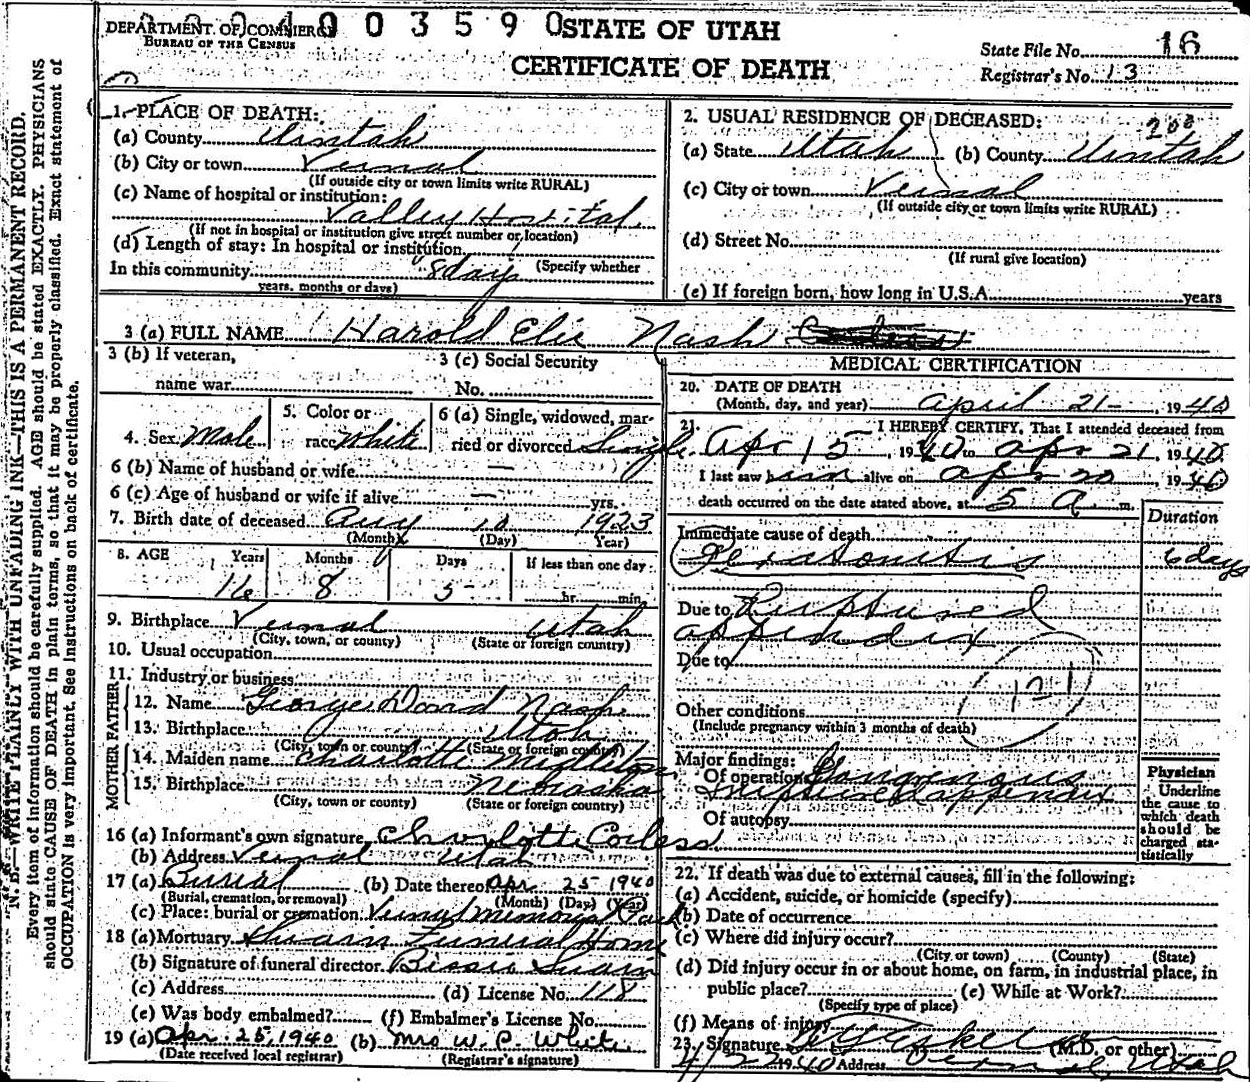 DEPARTMENT OF COMMERCE
BUREAU OF THE CENSUS
00359 0
STATE OF UTAH
CERTIFICATE OF DEATH
State File No. 16
Registrar's No. 13
N. B.—WRITE PLAINLY WITH UNFADING INK—THIS IS A PERMANENT RECORD.
Every item of information should be carefully supplied. AGE should be stated EXACTLY. PHYSICIANS
should state CAUSE OF DEATH in plain terms, so that it may be properly classified. Exact statement of
OCCUPATION is very important. See instructions on back of certificate.
1. PLACE OF DEATH:
(a) County Uintah
(b) City or town Vernal
(If outside city or town limits write RURAL)
(c) Name of hospital or institution:
Valley Hospital
(If not in hospital or institution give street number or location)
(d) Length of stay: In hospital or institution
In this community 8 days (Specify whether
years, months or days)
2. USUAL RESIDENCE OF DECEASED:
(a) State Utah (b) County Uintah
(c) City or town Vernal
(If outside city or town limits write RURAL)
(d) Street No.
(If rural give location)
(e) If foreign born, how long in U.S.A. years
3 (a) FULL NAME Harold Nash
3 (b) If veteran,
name war
3 (c) Social Security
No.
4. Sex Male
5. Color or
race White
6 (a) Single, widowed, mar-
ried or divorced Single
6 (b) Name of husband or wife —
6 (c) Age of husband or wife if alive — yrs.
7. Birth date of deceased Aug 1923
(Month) (Day) (Year)
8. AGE Years Months Days If less than one day
16 8 5 hr. min.
9. Birthplace Vernal Utah
(City, town, or county) (State or foreign country)
10. Usual occupation
11. Industry or business
FATHER
12. Name George David Nash
13. Birthplace Utah
(City, town or county) (State or foreign country)
MOTHER
14. Maiden name Charlotte Middleton
15. Birthplace Nebraska
(City, town or county) (State or foreign country)
16 (a) Informant's own signature Charlotte Corless
(b) Address Vernal Utah
17 (a) Burial (b) Date thereof Apr 25 1940
(Burial, cremation, or removal) (Month) (Day) (Year)
(c) Place: burial or cremation Vernal Memorial Park
18 (a) Mortuary Swain Funeral Home
(b) Signature of funeral director Swain
(c) Address (d) License No. 118
(e) Was body embalmed? (f) Embalmer's License No.
19 (a) Apr. 25, 1940 (b) Mrs W. P. White
(Date received local registrar) (Registrar's signature)
MEDICAL CERTIFICATION
20. DATE OF DEATH
(Month, day, and year) April 21- , 1940
21. I HEREBY CERTIFY, That I attended deceased from
Apr 15 , 1940 to Apr 21, 1940
I last saw him alive on Apr 20 , 1940
death occurred on the date stated above, at 5 A. m.
Duration
Immediate cause of death
Peritonitis 6 days
Due to Ruptured
appendix
Due to
121
Other conditions
(Include pregnancy within 3 months of death)
Major findings:
Of operation Gangrenous
ruptured appendix
Of autopsy
Physician
Underline
the cause to
which death
should be
charged sta-
tistically
22. If death was due to external causes, fill in the following:
(a) Accident, suicide, or homicide (specify)
(b) Date of occurrence
(c) Where did injury occur?
(City or town) (County) (State)
(d) Did injury occur in or about home, on farm, in industrial place, in
public place? (e) While at Work?
(Specify type of place)
(f) Means of injury
23. Signature (M.D. or other)
4/22 1940 Address Vernal, Utah